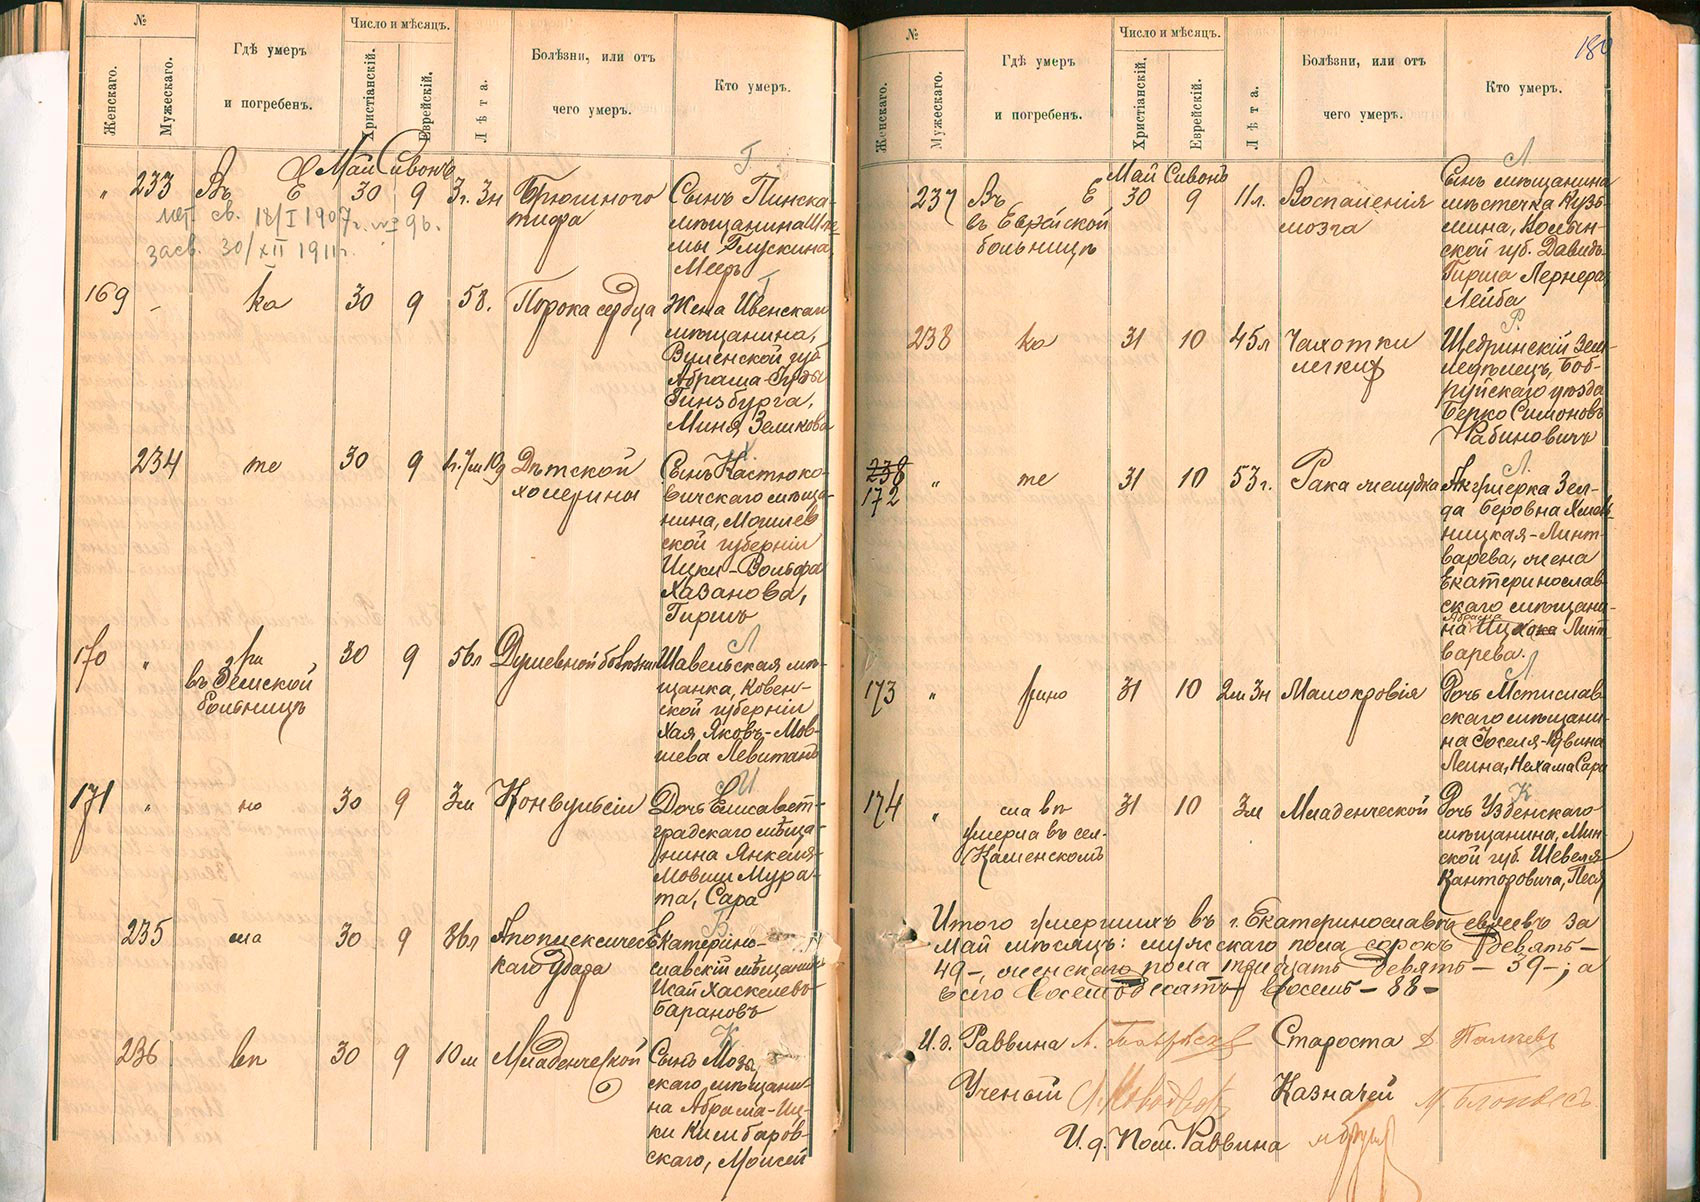 №
Женскаго.
Мужескаго.
Гдѣ умеръ
и погребенъ.
Число и мѣсяцъ.
Христіанскій.
Еврейскій.
Лѣта.
Болѣзни, или отъ
чего умеръ.
Кто умеръ.
Май Сивонъ
Г
" 233 Въ Е 30 9 3г. 3н Брюшного
тифа
Сынъ Пинска-
мѣщанина Шле-
мы Глускина,
Мееръ
мет. св. 18/I 1907г. № 96.
засв. 30/XII 1911г.
Г
169 - ка 30 9 58. Порока сердца
Жена Ивенскаго
мѣщанина,
Виленской губ
Абрама-Гуды
Гинзбурга,
Миня Зеликова
Х
234 те 30 9 1г. 7м 10д Дѣтской
холерины
Сынъ Костюко-
вичскаго мѣща-
нина, Могилев
ской губерніи
Ицки-Вольфа
Хазанова,
Гиршъ
Л
170 " ри 30 9 56л Душевной болѣзни
въ Земской
больницѣ
Шавельская мѣ-
щанка, Ковен-
ской губерніи
Хая Яковъ-Мов-
шева Левитанъ
М
171 " но 30 9 3м Конвульсіи
Дочь Елисавет-
градскаго мѣща-
нина Янкеля-
Мовши Мура-
та, Сара
Б
235 сла 30 9 86л Апоплексичес
каго удара
Екатерино-
славскій мѣщанинъ
Шай Хаскелево-
Барановъ
К
236 вп 30 9 10м Младенческой
Сынъ Мозы
скаго мѣщани-
на Абрама-Иц-
ки Кимбаров-
скаго, Моисей
180
№
Женскаго.
Мужескаго.
Гдѣ умеръ
и погребенъ.
Число и мѣсяцъ.
Христіанскій.
Еврейскій.
Лѣта.
Болѣзни, или отъ
чего умеръ.
Кто умеръ.
Май Сивонъ
Л.
237 Въ Е 30 9 11л. Воспаленія
мозга
въ Еврейской
больницѣ
Сынъ мѣщанина
мѣстечка Кузь-
мина, Волын-
ской губ. Давидъ
Гирша Лернера
Лейба
Р.
238 ка 31 10 45л Чахотки
легкихъ
Щедринскій Зем-
ледѣлецъ, Боб-
руйскаго уѣзда
Берко Симоновъ
Рабиновичъ
Л.
238
172 " те 31 10 53г. Рака желудка
Акушерка Зел-
да Беровна Хмель
ницкая-Линт-
варева, жена
Екатеринослав
скаго мѣщани-
Абрама
на Ицхока Линт
варева.
Л
173 " рино 31 10 2м 3н Малокровія
Дочь Мстислав
скаго мѣщани-
на Іоселя-Рувина
Леина, Нехама Сара
К
174 " сла вп 31 10 3м Младенческой
умерла въ сел.
Каменскомъ
Дочь Узденскаго
мѣщанина, Мин-
ской губ. Шевеля
Канторовича, Песя
Итого умершихъ въ г. Екатеринославѣ евреевъ за
Май мѣсяцъ: мужскаго пола сорокъ девять-
49-, женскаго пола тридцать девять - 39-; а
всего восемьдесятъ восемь - 88-
И.д. Раввина Староста
Ученый Казначей
И.д. Пом. Раввина